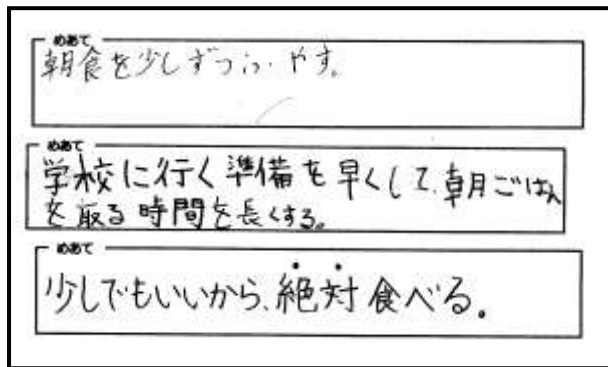 めあて
朝食を少しずつふやす。
めあて
学校に行く準備を早くして、朝ごはん
を取る時間を長くする。
めあて
少しでもいいから、絶対食べる。